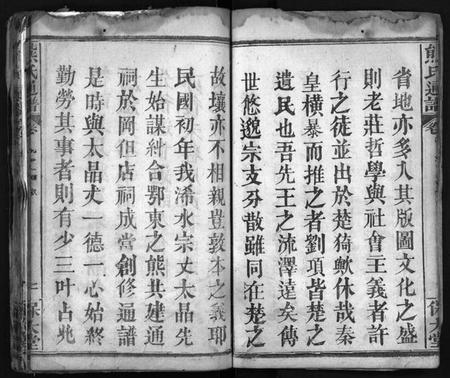 熊氏通譜
省地亦多入其版圖文化之盛
則老莊哲學與社會主義者許
行之徒並出於楚猗歟休哉秦
皇橫暴而推之者劉項皆楚之
遺民也吾先王之流澤遠矣傳
世悠邈宗支分散雖同在楚之
保大堂
故壤亦不相親豈敦本之義耶
民國初年我浠水宗丈太晶先
生始謀糾合鄂東之熊共建通
祠於岡但店祠成嘗創修通譜
是時與太晶丈一德一心始終
勤勞其事者則有少三叶占兆
熊氏通譜
保大堂